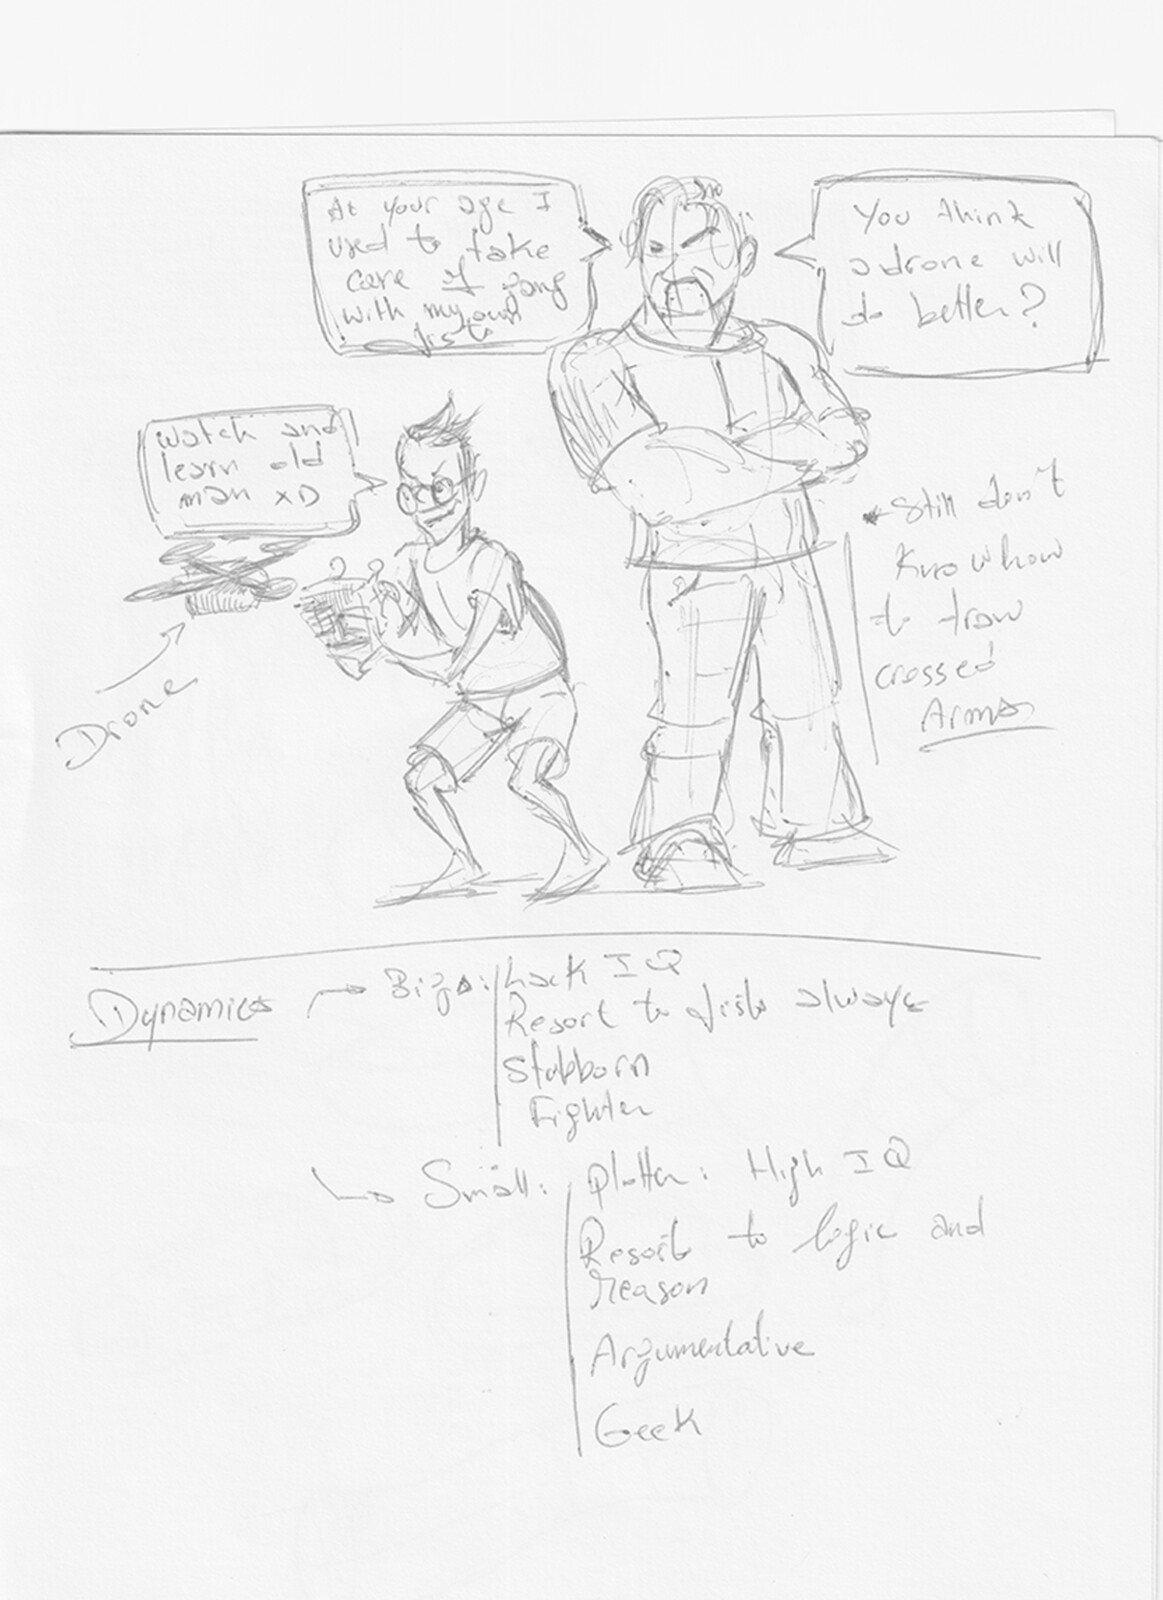 At your age I
used to take
care of gang
with my own
fists
You think
a drone will
do better?
Watch and
learn old
man XD
Drone
Still don't
Know how
to draw
crossed
Arms
Dynamics
Big: Lack IQ
Resort to fists always
Stubborn
Fighter
Small: Plotter: High IQ
Resort to logic and
reason
Argumentative
Geek